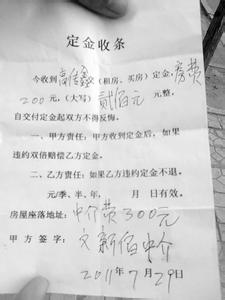 定金收条
今收到 (租房、买房) 定金,房费
200元,(大写) 贰佰元 元整,
自交付定金起双方不得反悔。
一、甲方责任:甲方收到定金后,如果
违约双倍赔偿乙方定金。
二、乙方责任:如果乙方违约定金不退。
元/季、半、年, 月 日有效。
房屋座落地址:中介费300元
甲方签字: 新佰中介
2011年7月29日